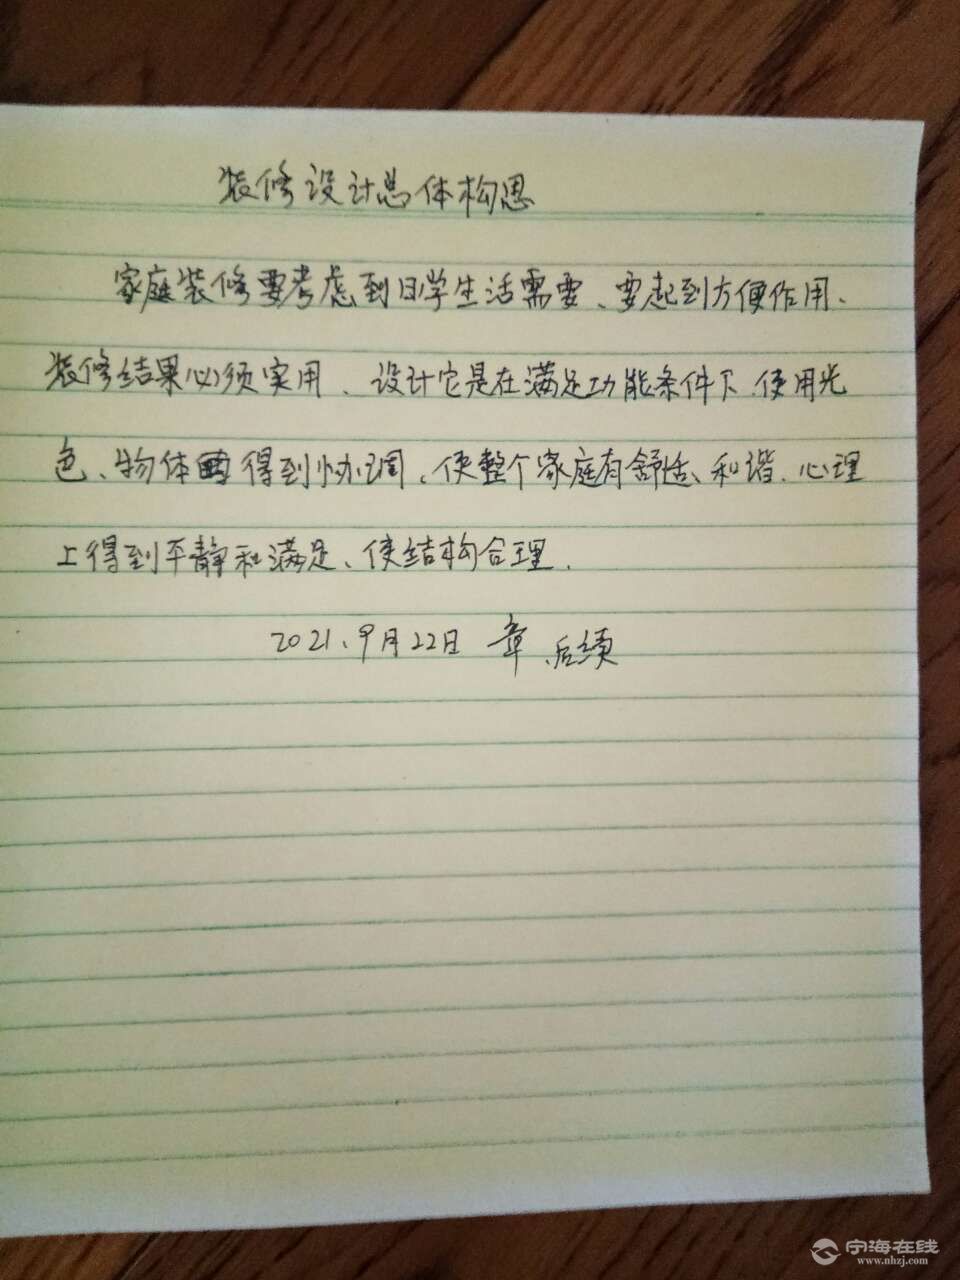 装修设计总体构思
家庭装修要考虑到日学生活需要、要起到方便作用、
装修结果必须实用、设计它是在满足功能条件下、使用光
色、物体 得到协调、使整个家庭有舒适、和谐、心理
上得到平静和满足、使结构合理.
2021、9月22日 章、后续
宁海在线
www.nhzj.com